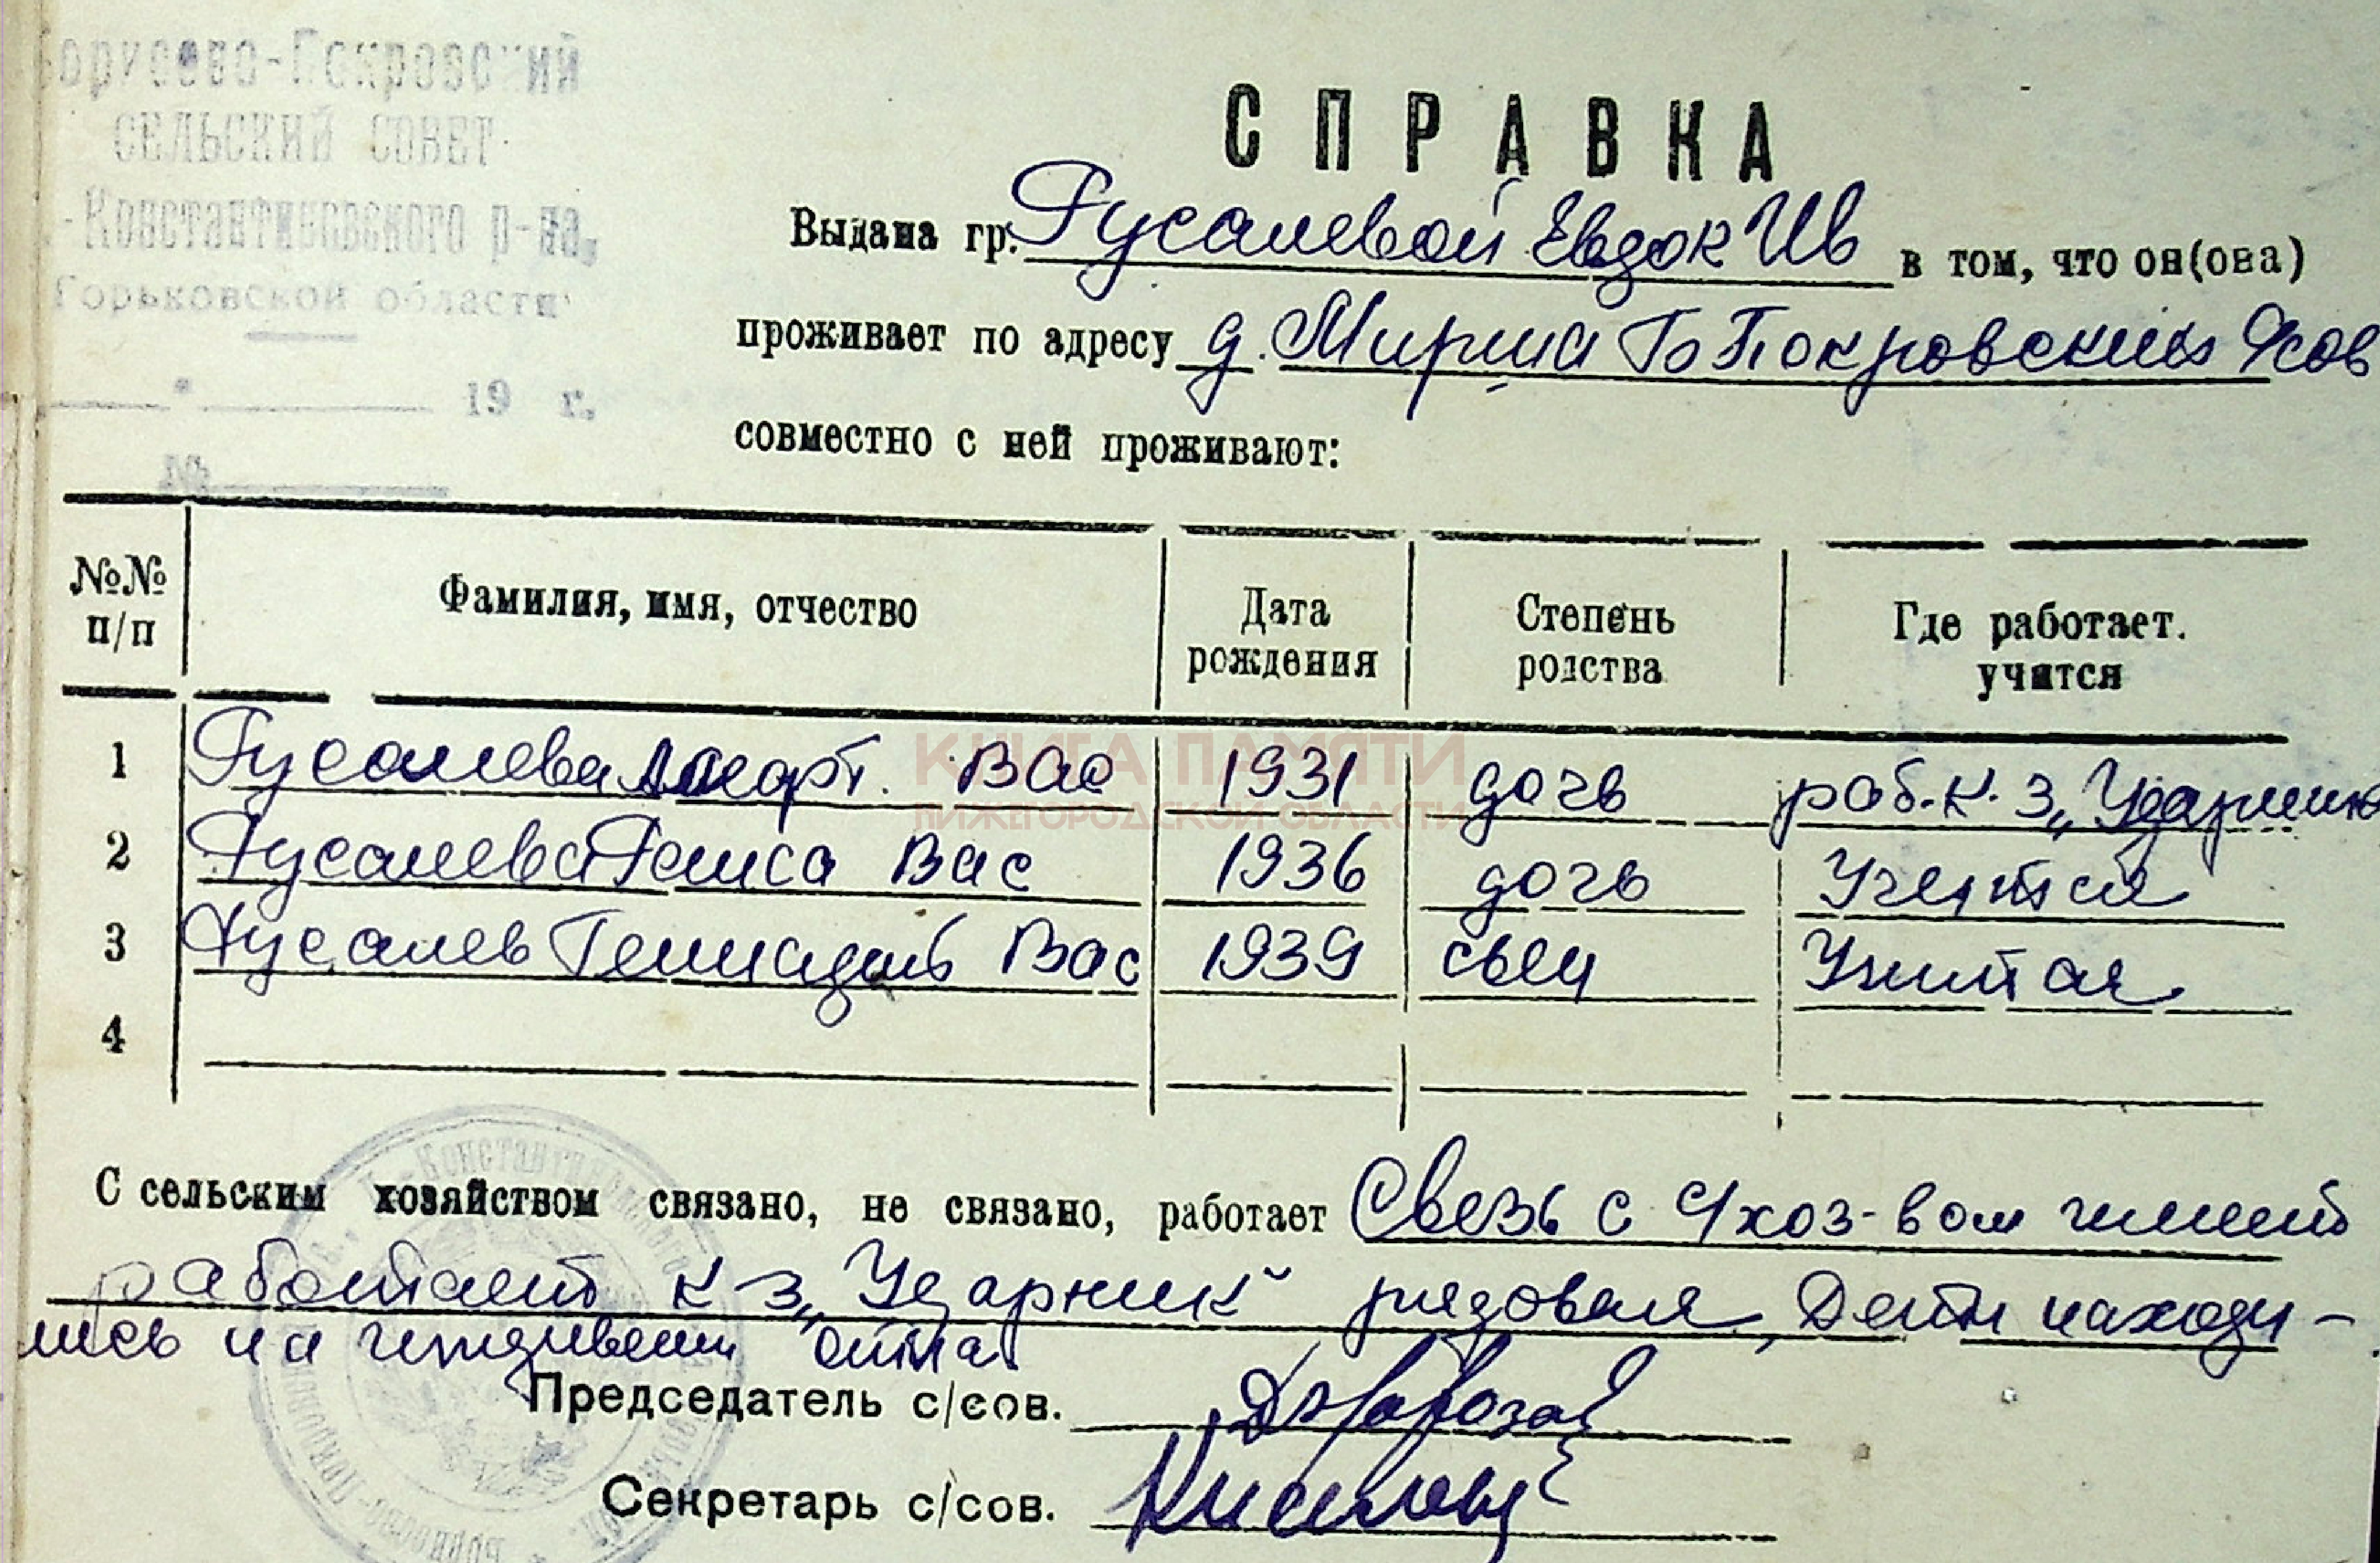 Борусово-Покровский
СЕЛЬСКИЙ СОВЕТ
-Константиновского р-на,
Горьковской области
19 г.
№
СПРАВКА
Выдана гр. Русалевой Евдок Ив в том, что он(она)
проживает по адресу д. Мирша Б Покровский
совместно с ней проживают:
№№ п/п Фамилия, имя, отчество Дата рождения Степень родства Где работает. учится
1 Русалева Вас 1931 дочь раб. к. з „Ударник
2 Русалева Раиса Вас 1936 дочь Учится
3 Русалев Геннадий Вас 1939 сын Учится
4
КНИГА ПАМЯТИ
НИЖЕГОРОДСКОЙ ОБЛАСТИ
С сельским хозяйством связано, не связано, работает Связь с с/хоз-вом имеет
работает к з „Ударник" рядовая, Дети находи-
лись на иждивении отца
Председатель с/сов.
Секретарь с/сов.